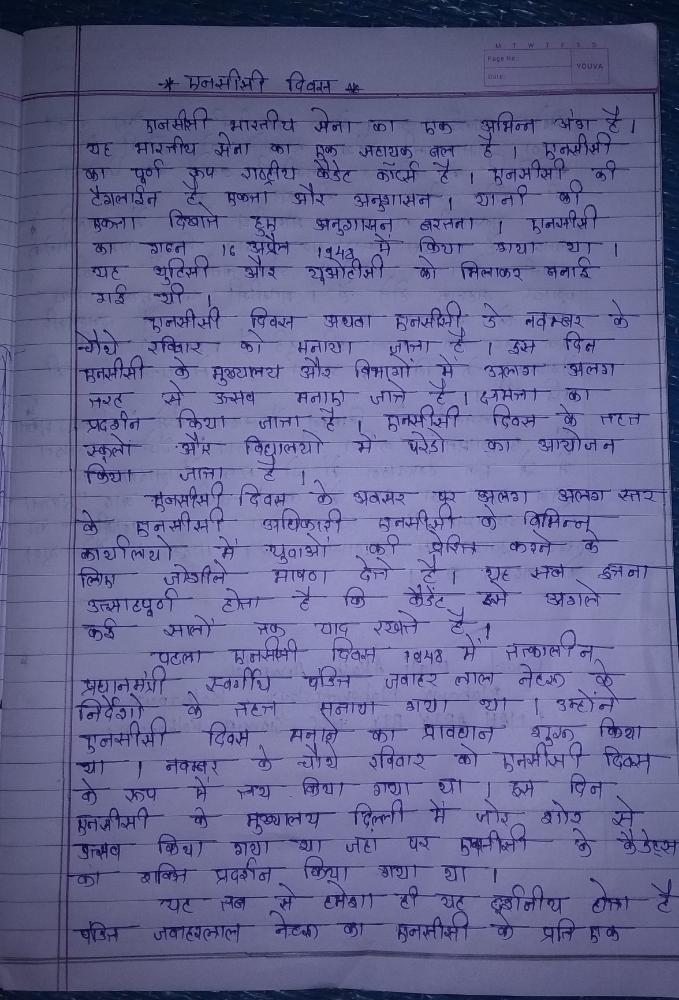 M T W T F S S
Page No.:
Date:
YOUVA
* एनसीसी दिवस *
एनसीसी भारतीय सेना का एक अभिन्न अंग है।
यह भारतीय सेना का एक सहायक बल है। एनसीसी
का पूर्ण रूप राष्ट्रीय कैडेट कॉर्प्स है। एनसीसी की
टैगलाईन है एकता और अनुशासन। यानी की
एकता दिखाते हुए अनुशासन बरतना। एनसीसी
का गठन 16 अप्रैल 1948 में किया गया था।
यह युटिसी और यूओटीसी को मिलाकर बनाई
गई थी।
एनसीसी दिवस अथवा एनसीसी डे नवम्बर के
चौथे रविवार को मनाया जाता है। इस दिन
एनसीसी के मुख्यालय और विभागों में अलग अलग
तरह से उत्सव मनाए जाते है। क्षमता का
प्रदर्शन किया जाता है। एनसीसी दिवस के तहत
स्कूलो और विद्यालयो में परेडो का आयोजन
किया जाता है।
एनसीसी दिवस के अवसर पर अलग अलग स्तर
के एनसीसी अधिकारी एनसीसी के विभिन्न
कार्यालयो में युवाओं को प्रेरित करने के
लिए जोशीले भाषण देते है। यह सब इतना
उत्साहपूर्ण होता है कि कैडेट इसे अगले
कई सालों तक याद रखते है।
पहला एनसीसी दिवस 1948 में तत्कालीन
प्रधानमंत्री स्वर्गीय पंडित जवाहर लाल नेहरू के
निर्देशो के तहत मनाया गया था। उन्होंने
एनसीसी दिवस मनाने का प्रावधान शुरू किया
था। नवम्बर के चौथे रविवार को एनसीसी दिवस
के रूप में तय किया गया था। इस दिन
एनसीसी के मुख्यालय दिल्ली में जोर शोर से
उत्सव किया गया था जहा पर एनसीसी के कैडेट्स
का शक्ति प्रदर्शन किया गया था।
यह तब से हमेशा ही यह दर्शनीय होता है
पंडित जवाहरलाल नेहरू का एनसीसी के प्रति एक